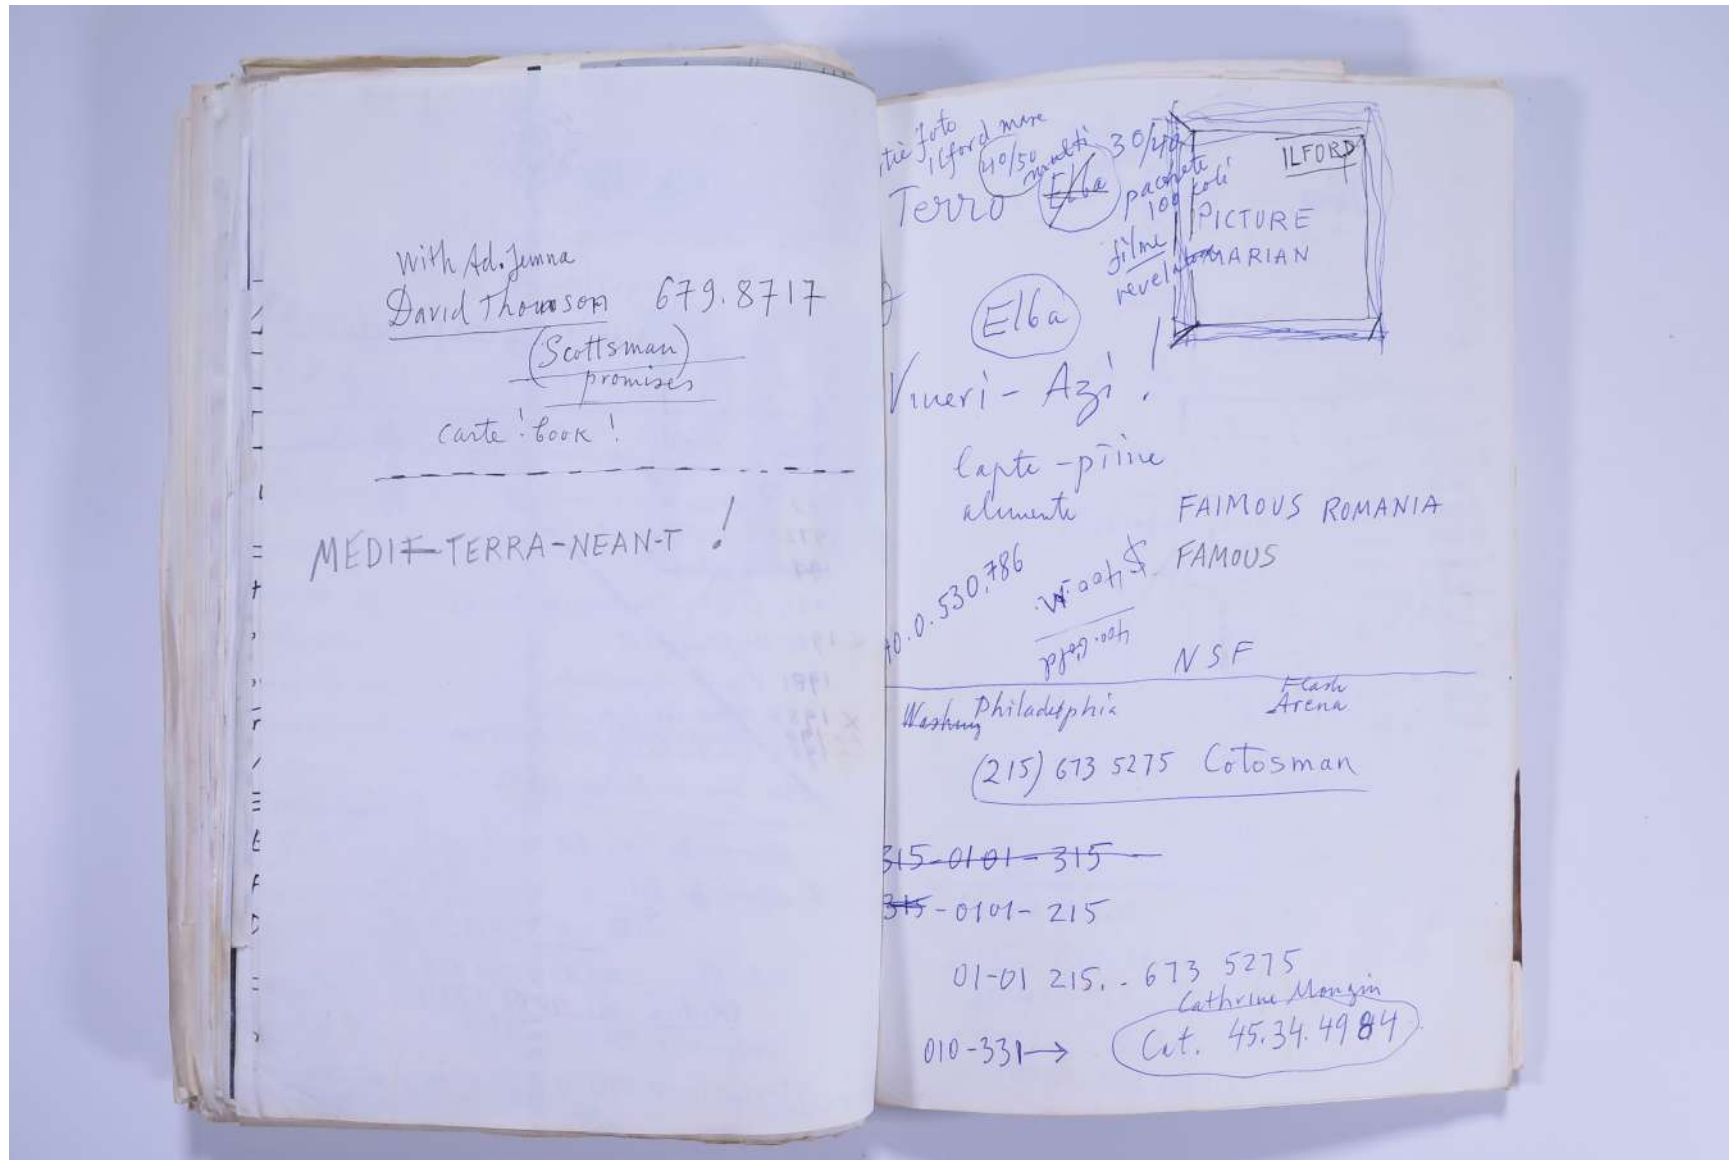 With Ad. Jemna
David Thomson 679.8717
(Scottsman)
promises
carte! book!
MEDIT-TERRA-NEAN-T!
foto
ilford mare
40/50 multi 30/40
Terro Elba pachete
100 coli
filme
revelator
ILFORD
PICTURE
MARIAN
Elba
Vineri - Azi!
lapte - pîine
alimente
FAIMOUS ROMANIA
FAMOUS
40.0.530.786
$400.M.
400.Gold
NSF
Washing Philadelphia
Flash
Arena
(215) 673 5275 Cotosman
315-0101-315
315-0101-215
01-01 215.. 673 5275
Cathrine Mongin
010-331→ Cat. 45.34.4984